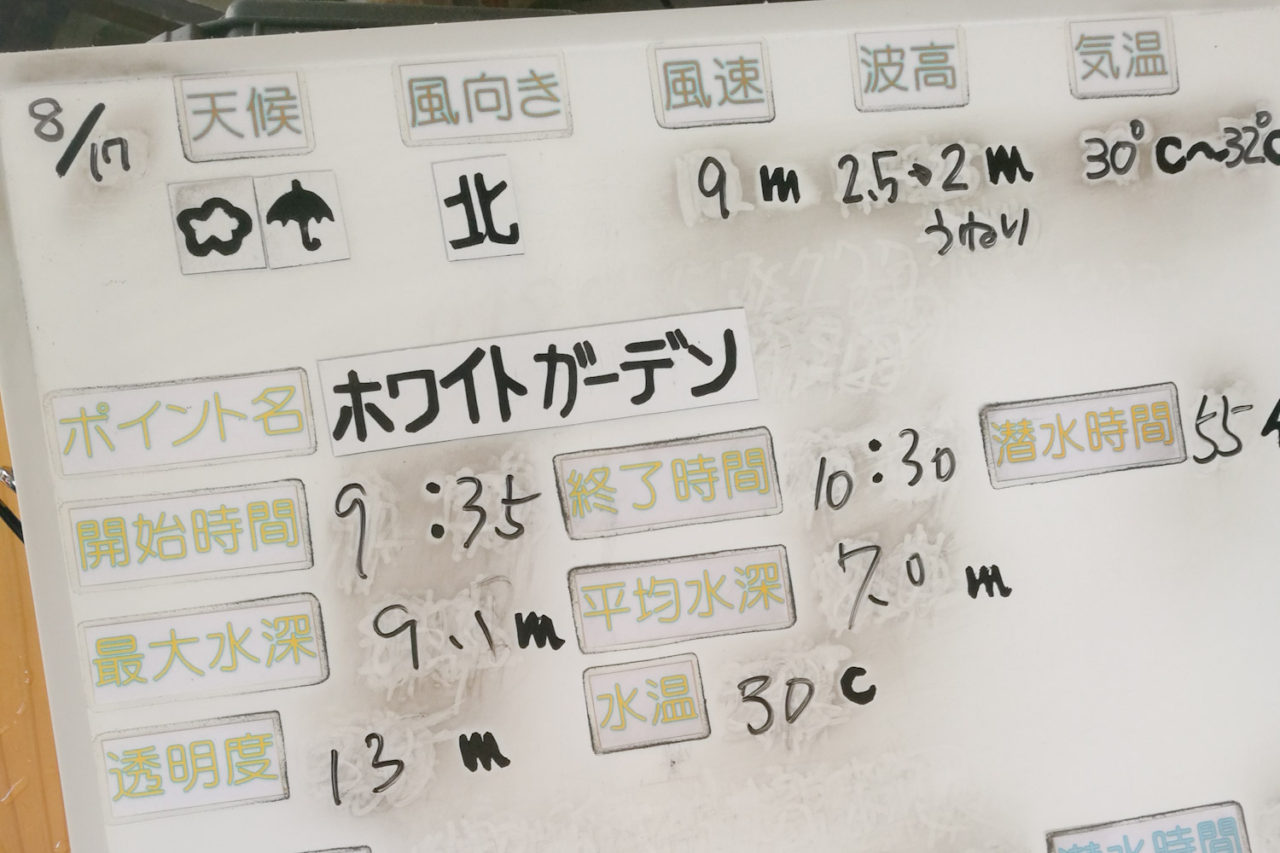 8/17 天候 風向き 風速 波高 気温
北 9 m 2.5→2 m 30°C~32°C
うねり
ポイント名 ホワイトガーデン
開始時間 9:35 終了時間 10:30 潜水時間 55
最大水深 9.1 m 平均水深 7.0 m
透明度 13 m 水温 30 C
潜水時間